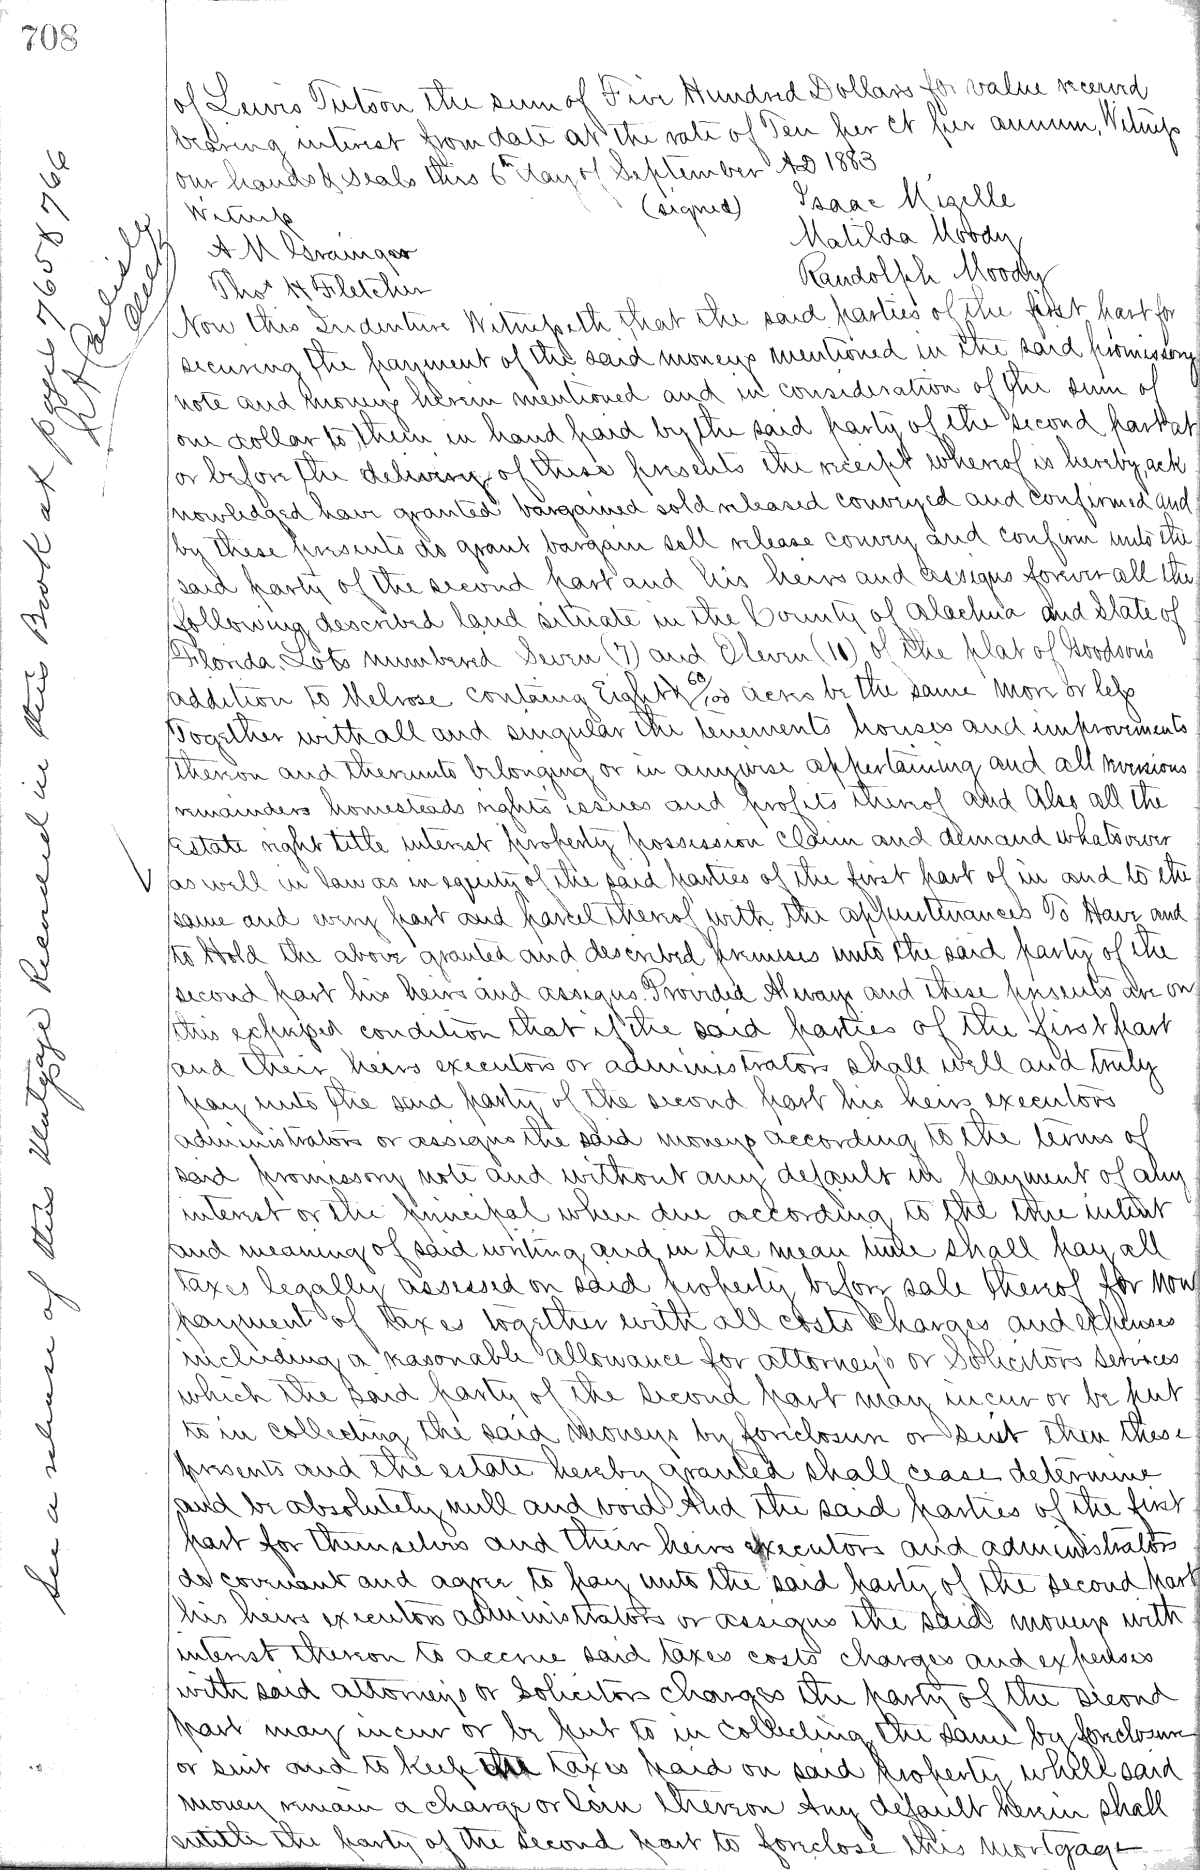 708
of Lewis Tutson the sum of Five Hundred Dollars for value received
bearing interest from date at the rate of Ten per ct per annum, Witness
our hands & seals this 6th day of September AD 1883
Witness (signed) Isaac Mizelle
A M Grainger Matilda Moody
Thos H Fletcher Randolph Moody
Now this Indenture Witnesseth that the said parties of the first part for
securing the payment of the said moneys mentioned in the said promissory
note and moneys herein mentioned and in consideration of the sum of
one dollar to them in hand paid by the said party of the second part at
or before the delivery of these presents the receipt whereof is hereby ack
nowledged have granted bargained sold released conveyed and confirmed and
by these presents do grant bargain sell release convey and confirm unto the
said party of the second part and his heirs and assigns forever all the
following described land situate in the County of Alachua and State of
Florida. Lots numbered Seven (7) and Eleven (11) of the plat of Goodson's
addition to Melrose containg Eight & 60/100 acres be the same more or less
Together with all and singular the tenements houses and improvements
thereon and thereunto belonging or in anywise appertaining and all reversions
remainders homesteads rights issues and profits thereof and Also all the
Estate right title interest property possession claim and demand whatsoever
as well in law as in equity of the said parties of the first part of in and to the
same and every part and parcel thereof with the appurtenances To Have and
to Hold the above granted and described premises unto the said party of the
second part his heirs and assigns. Provided Always and these presents are on
this express condition that if the said parties of the first part
and their heirs executors or administrators shall well and truly
pay unto the said party of the second part his heirs executors
administrators or assigns the said moneys according to the terms of
said promissory note and without any default in payment of any
interest or the principal when due according to the true intent
and meaning of said writing and in the mean time shall pay all
taxes legally assessed on said property before sale thereof for non
payment of taxes together with all costs charges and expenses
including a reasonable allowance for attorney's or Solicitors services
which the said party of the second part may incur or be put
to in collecting the said moneys by foreclosure or suit then these
presents and the estate hereby granted shall cease determine
and be absolutely null and void And the said parties of the first
part for themselves and their heirs executors and administrators
do covenant and agree to pay unto the said party of the second part
his heirs executors administrators or assigns the said moneys with
interest thereon to accrue said taxes costs charges and expenses
with said attorney's or Solicitors charges the party of the second
part may incur or be put to in collecting the same by foreclosure
or suit and to keep the taxes paid on said property whill said
money remain a charge or lein thereon Any default herein shall
entitle the party of the second part to foreclose this mortgage
See a release of this Mortgage Recorded in this Book at page 765 & 766